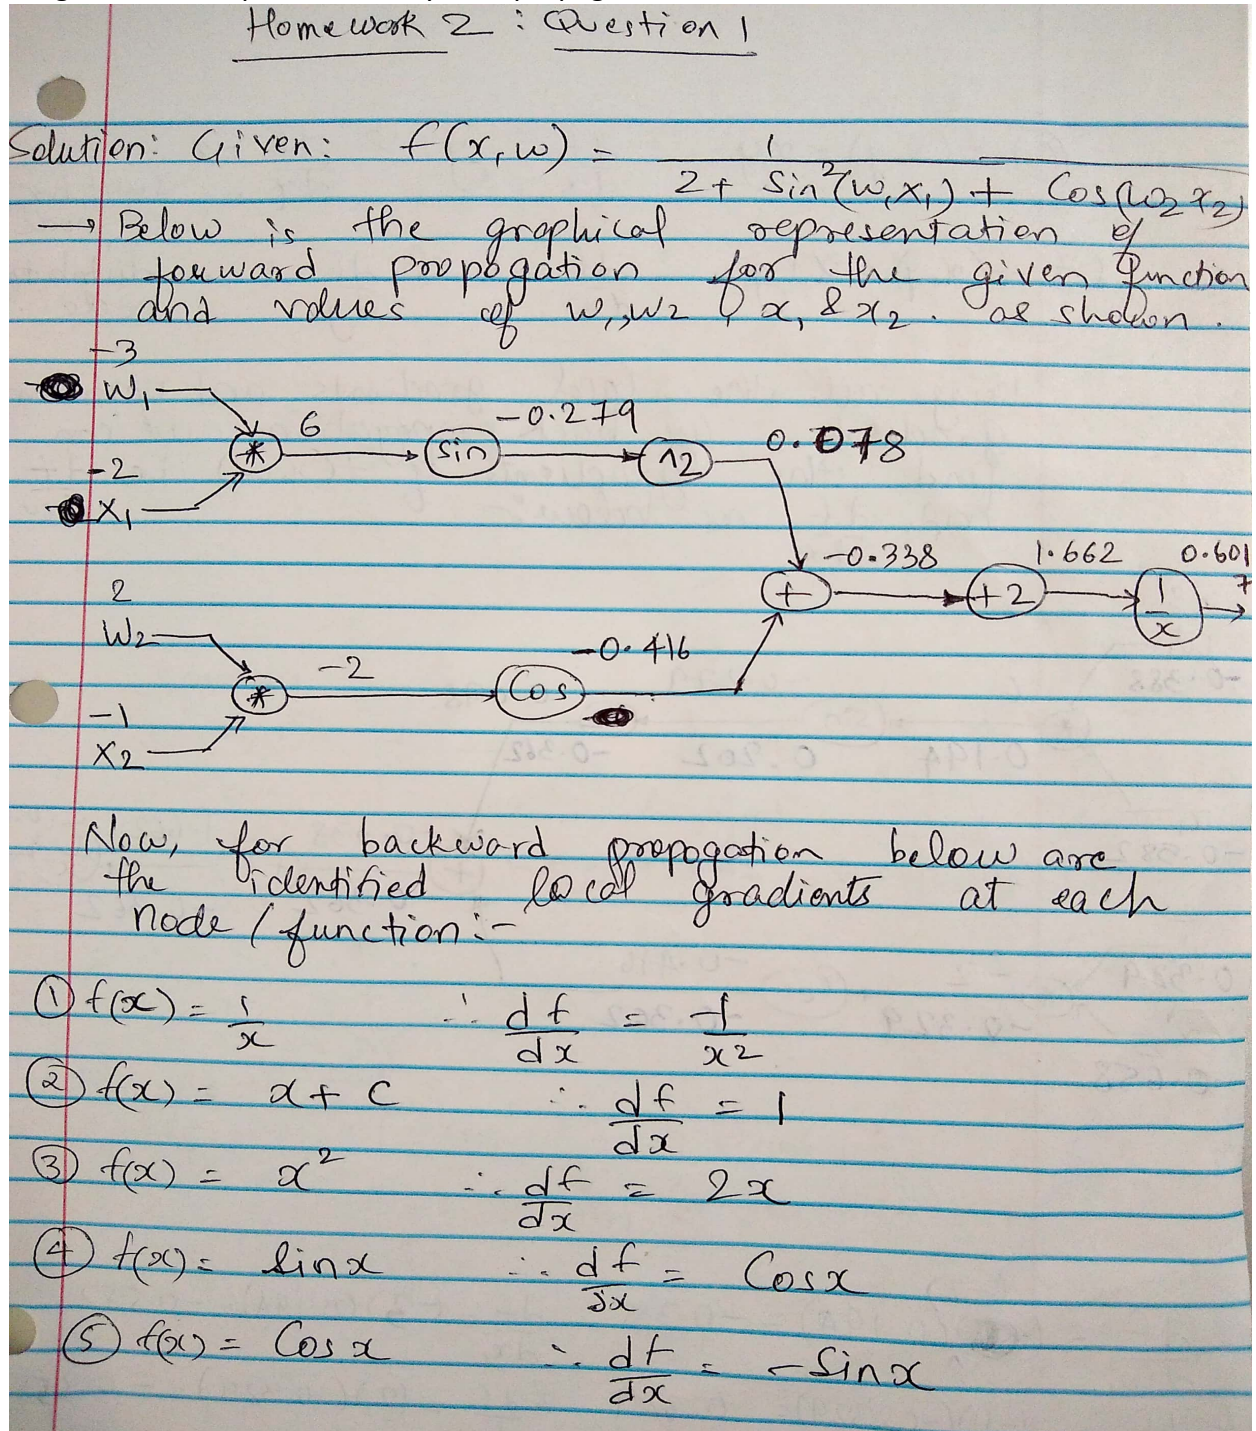 Homework 2 : Question 1
Solution: Given: f(x, w) = 1 / 2 + Sin²(w₁x₁) + Cos(w₂x₂)
→ Below is the graphical representation of
forward propogation for the given function
and values of w₁, w₂, x₁ & x₂. as shown.
-3
w₁
*
6
sin
-0.279
^2
0.078
-2
x₁
+
-0.338
+2
1.662
1/x
0.6017
2
w₂
*
-2
Cos
-0.416
-1
x₂
Now, for backward propogation below are
the identified local gradients at each
node / function :-
① f(x) = 1/x ∴ df/dx = -1/x²
② f(x) = x + C ∴ df/dx = 1
③ f(x) = x² ∴ df/dx = 2x
④ f(x) = sinx ∴ df/dx = Cosx
⑤ f(x) = Cosx ∴ df/dx = -Sinx